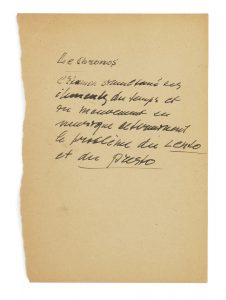 Le Chronos
L'examen simultané des
éléments du temps et
du mouvement en
musique déterminant
le problème du Lento
et du presto